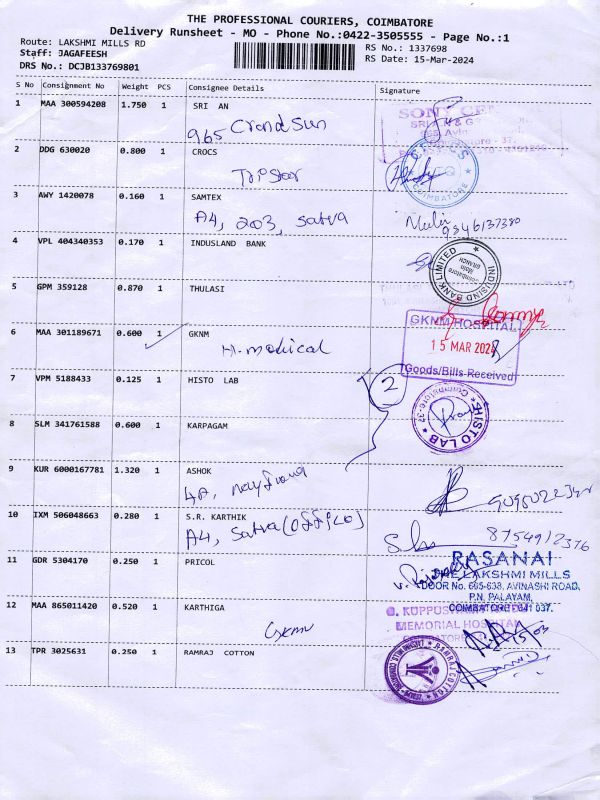 THE PROFESSIONAL COURIERS, COIMBATORE
Delivery Runsheet - MO - Phone No.:0422-3505555 - Page No.:1
Route: LAKSHMI MILLS RD
RS No.: 1337698
Staff: JAGAFEESH
RS Date: 15-Mar-2024
DRS No.: DCJB133769801
S No Consignment No Weight PCS Consignee Details Signature
1 MAA 300594208 1.750 1 SRI AN
965 Crand Sun
2 DDG 630020 0.800 1 CROCS
COIMBATORE
Tristar
3 AWY 1420078 0.160 1 SAMTEX
A4, 203, Satva
9346137380
4 VPL 404340353 0.170 1 INDUSLAND BANK
INDUSIND BANK LIMITED
Coimbatore
Main
BRANCH
5 GPM 359128 0.870 1 THULASI
6 MAA 301189671 0.600 1 GKNM
H. modical
GKNM HOSPITAL
15 MAR 2024
Goods/Bills Received
7 VPM 5188433 0.125 1 HISTO LAB
2
HISTO LAB
Coimbatore-37
8 SLM 341761588 0.600 1 KARPAGAM
9 KUR 6000167781 1.320 1 ASHOK
4A,
10 IXM 506048663 0.280 1 S.R. KARTHIK
A4, Satva
8754912376
11 GDR 5304170 0.250 1 PRICOL
RASANAI
THE LAKSHMI MILLS
DOOR No. 685-638, AVINASHI ROAD,
P.N. PALAYAM,
COIMBATORE - 641 037.
12 MAA 865011420 0.520 1 KARTHIGA
GKNM
MEMORIAL HOSPITAL
13 TPR 3025631 0.250 1 RAMRAJ COTTON
RAMRAJ COTTON